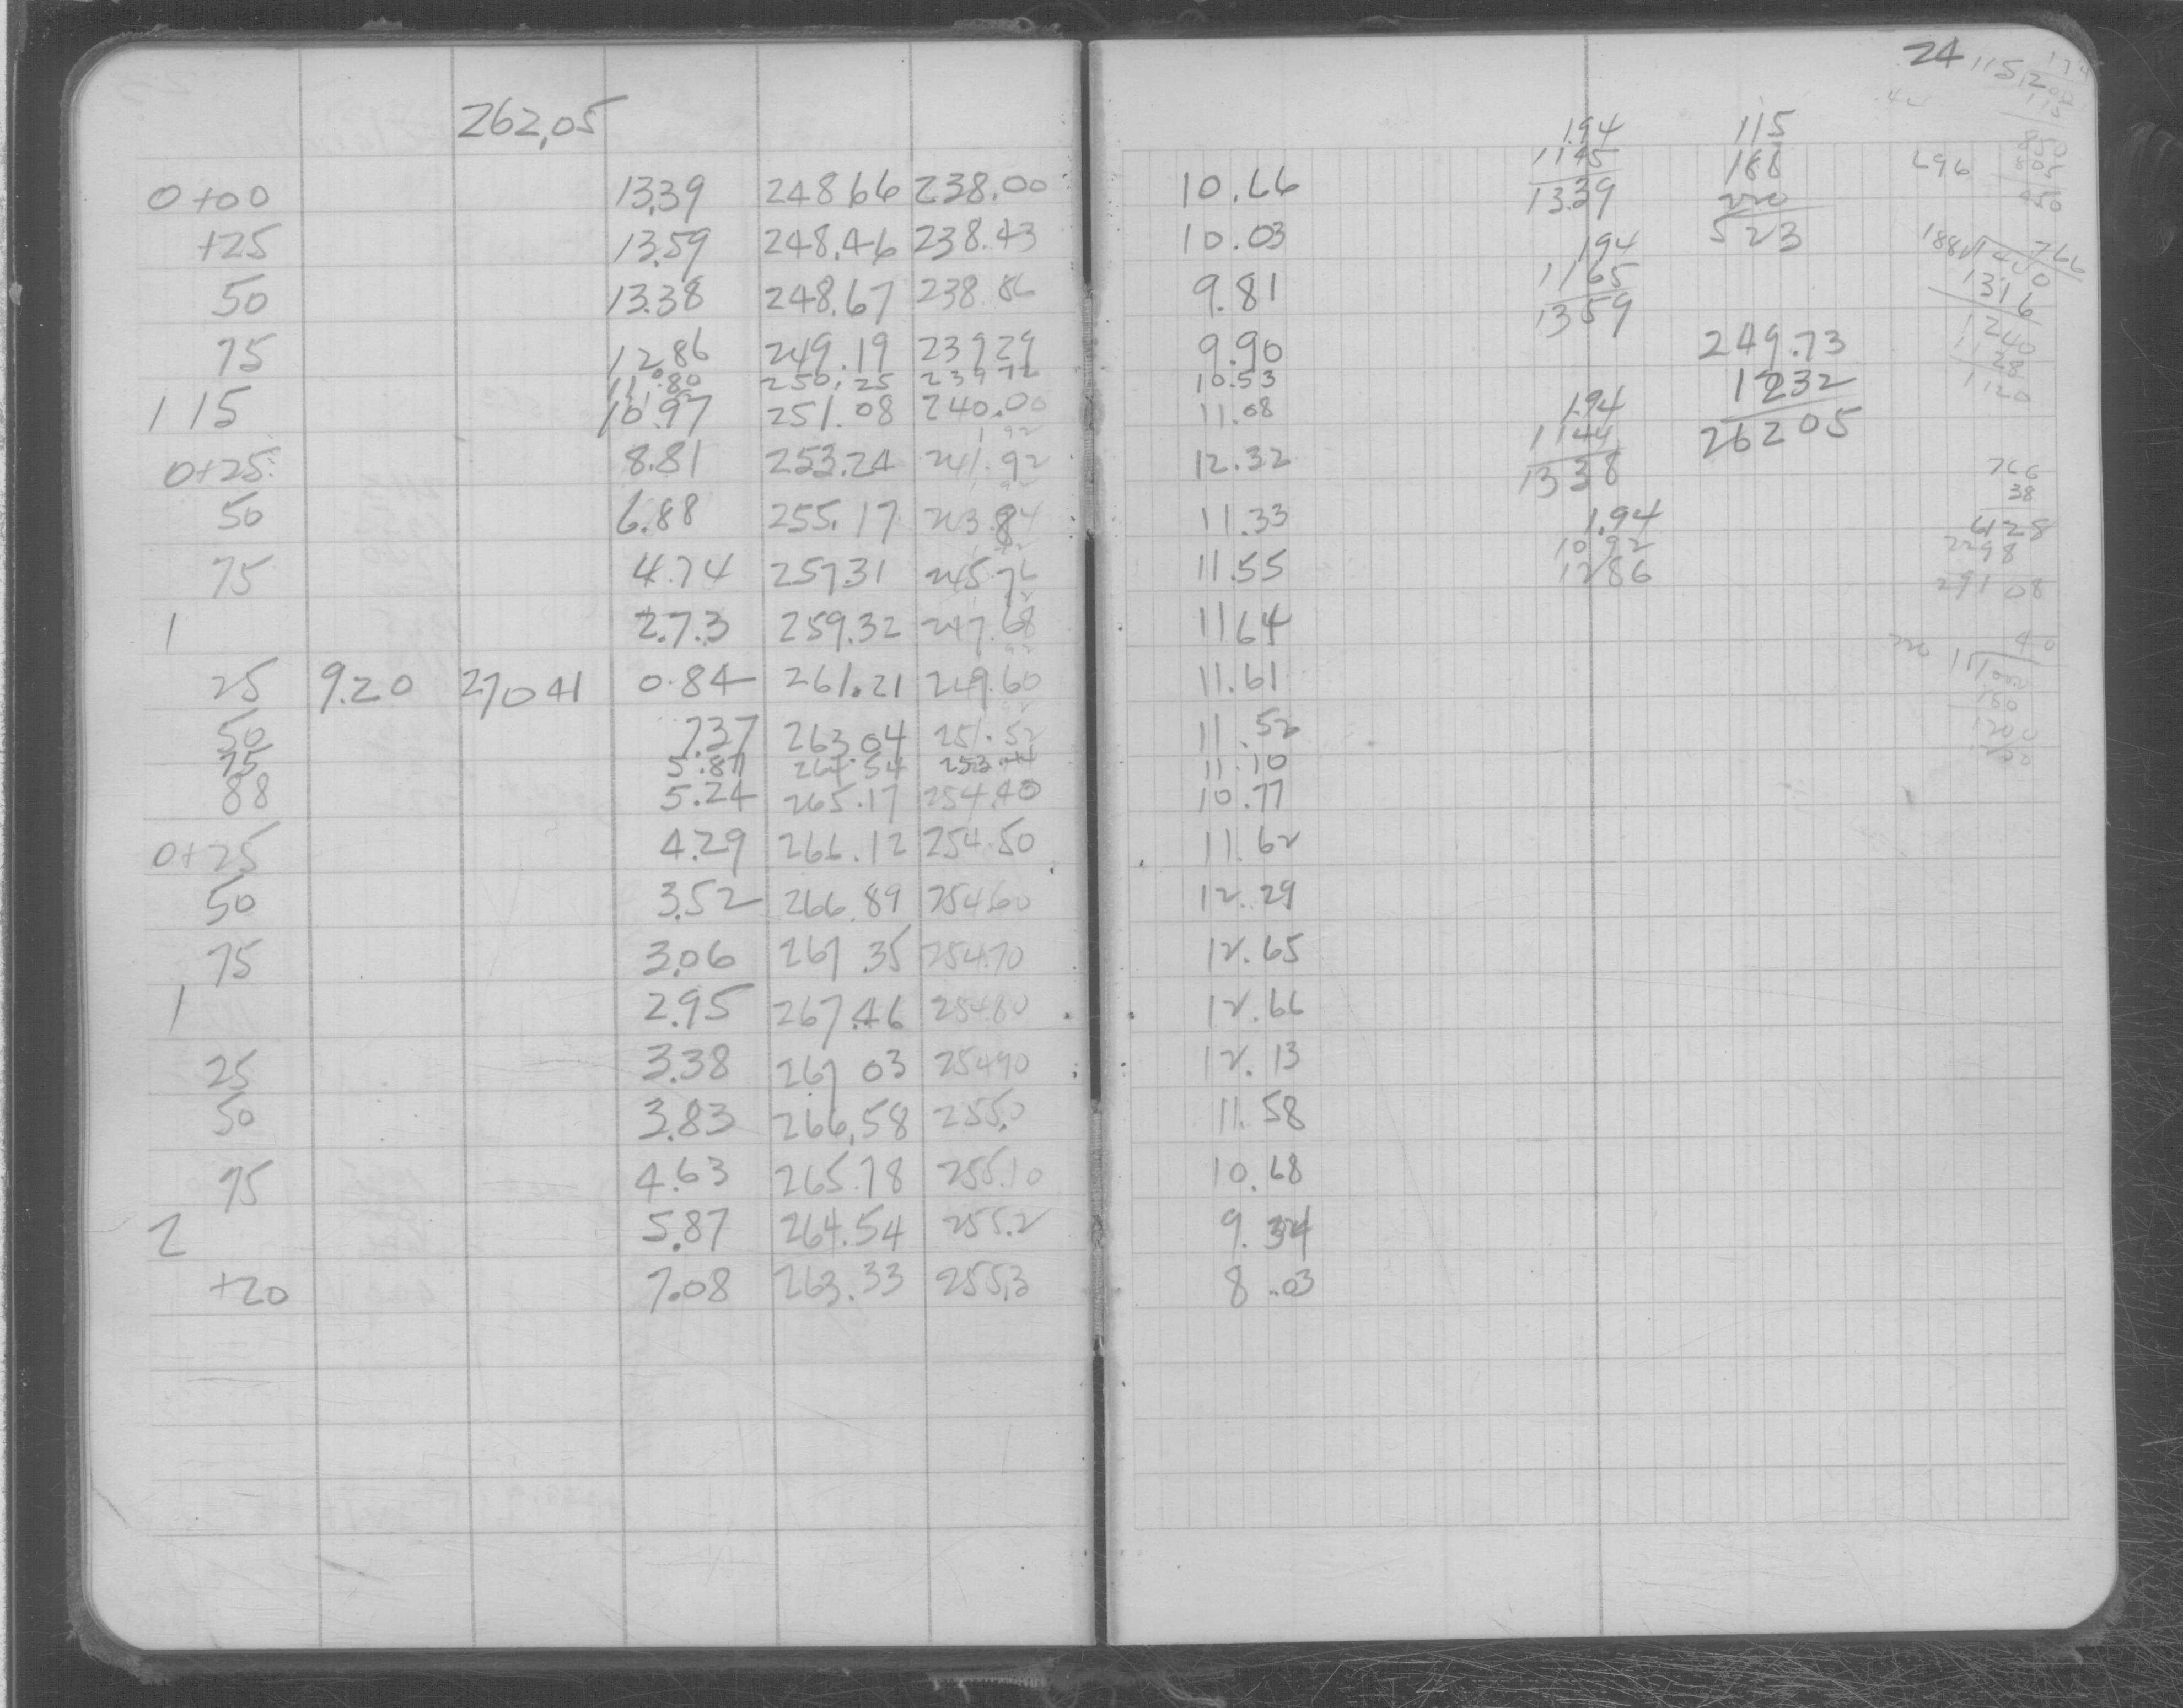 24
262.05
0+00 13.39 248.66 238.00 10.66
+25 13.59 248.46 238.43 10.03
50 13.38 248.67 238.86 9.81
75 12.86 249.19 239.29 9.90
11.80 250.25 239.72 10.53
1 15 10.97 251.08 240.00 11.08
0+25 8.81 253.24 241.92 12.32
50 6.88 255.17 243.84 11.33
75 4.74 257.31 245.76 11.55
1 2.73 259.32 247.68 11.64
25 9.20 270.41 0.84 261.21 249.60 11.61
50 7.37 263.04 251.52 11.52
75 5.87 264.54 253.44 11.10
88 5.24 265.17 254.40 10.77
0+25 4.29 266.12 254.50 11.62
50 3.52 266.89 254.60 12.29
75 3.06 267.35 254.70 12.65
1 2.95 267.46 254.80 12.66
25 3.38 267.03 254.90 12.13
50 3.83 266.58 255.0 11.58
75 4.63 265.78 255.10 10.68
2 5.87 264.54 255.2 9.34
+20 7.08 263.33 255.3 8.03
1.94
1145
13.39
194
1165
1359
1.94
1144
1338
1.94
10 92
1286
115
188
220
523
249.73
1232
26205
696
188 1440 766
1316
1240
1128
1120
766
38
6128
2298
29108